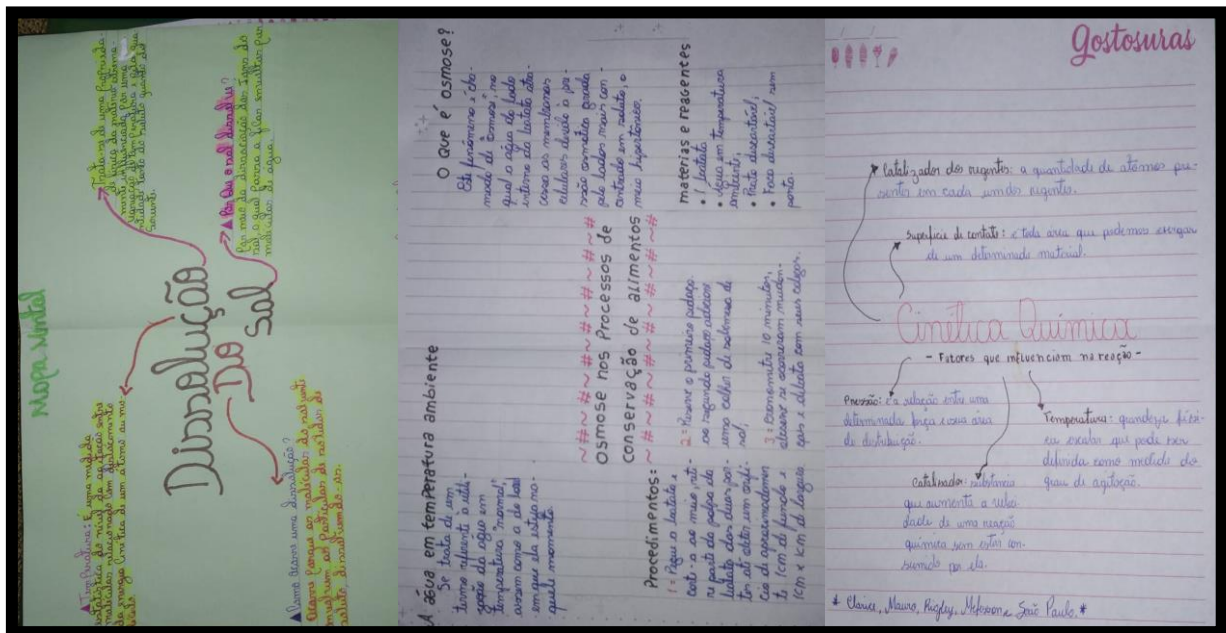 Mapa Mental
▲Temperatura: É uma medida
estatística do nível de agitação entre
moléculas, relacionado com deslocamento
da energia cinética de um átomo ou mo-
lécula
Trata-se de uma propriedade
física da matéria extrema-
mente influenciada por uma
variação de temperatura e pela qua
ntidade tanto do soluto quanto do
solvente.
Dissolução
Do
Sal
▲Como ocorre uma dissolução?
Ocorre porque as moléculas do solvente
as partículas do sólido do
soluto, dissolvendo-as.
▲Por que o sal dissolve?
Por meio da dissociação dos íons do
sal o qual passa a ficar por
moléculas de água.
A água em temperatura ambiente
Se trata de um
termo referente a utili-
zação da água em
temperatura "normal",
assim como a do local
em que ela esteja na-
quele momento.
O que é osmose?
Este fenômeno é cha-
mado de "osmose", no
qual a água do lado
interno da batata atra-
vessa as membranas
celulares devido à pre-
ssão osmótica gerada
pelo lado mais con-
centrado em soluto, o
meio hipertônico.
~#~#~#~#~#~#~#~#
osmose nos Processos de
conservação de alimentos
~#~#~#~#~#~#~#~#
Procedimentos:
1: Pegue a batata e
corte-a ao meio, reti-
re parte da polpa da
batata das duas par-
tes até obter um orifí-
cio de aproximadamen
te 1cm de fundo e
1cm x 1cm de largura
2: Reserve o primeiro pedaço
ao segundo pedaço adicione
uma colher de sobremesa de
sal;
3: Cronometre 10 minutos,
observe se ocorreram mudan-
ças e debata com seus colegas.
materias e reagentes
• 1 batata
• Água em temperatura
ambiente;
• Prato descartável;
• Faca descartável sem
ponta.
Gostosuras
Catalizador dos reagentes: a quantidade de átomos pre-
sentes em cada um dos reagentes.
Superfície de contato: é toda área que podemos enxergar
de um determinado material.
Cinética Química
- Fatores que influenciam na reação -
Pressão: é a relação entre uma
determinada força e sua área
de distribuição.
Temperatura: grandeza físi-
ca escalar que pode ser
definida como medida do
grau de agitação.
Catalisador: substância
que aumenta a velo-
dade de uma reação
química sem estar con-
sumido por ela.
* Clarice, Mauro, e João Paulo. *